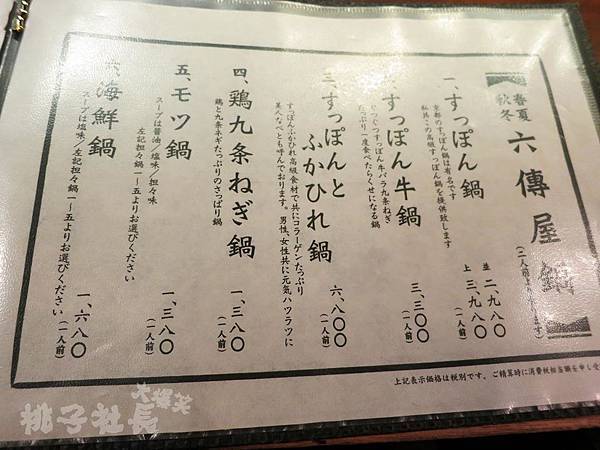 春夏
秋冬
六傳屋鍋
(二人前より
ます)
一、すっぽん鍋
京都のすっぽん鍋は有名です
私共この高級すっぽん鍋を提供致します
並 二、九八〇
上 三、九八〇
(一人前)
すっぽん牛鍋
すっぽん牛バラ九条ねぎ
たっぷり一度食べたらくせになる鍋
三、三〇〇
(一人前)
三、すっぽんと
ふかひれ鍋
すっぽんふかひれ高級食材で共にコラーゲンたっぷり
美人なべとも呼んでおります。男性、女性共に元気ハツラツに
六、八〇〇
(一人前)
四、鶏九条ねぎ鍋
鶏と九条ネギたっぷりのさっぱり鍋
一、三八〇
(一人前)
五、モツ鍋
スープは醤油/塩味/担々味
左記担々鍋一~五よりお選びください
一、三八〇
(一人前)
六、海鮮鍋
スープは塩味/左記担々鍋一~五よりお選びください
一、六八〇
(一人前)
上記表示価格は税別です。ご精算時に消費税相当額を申し受
桃子社長
大爆笑